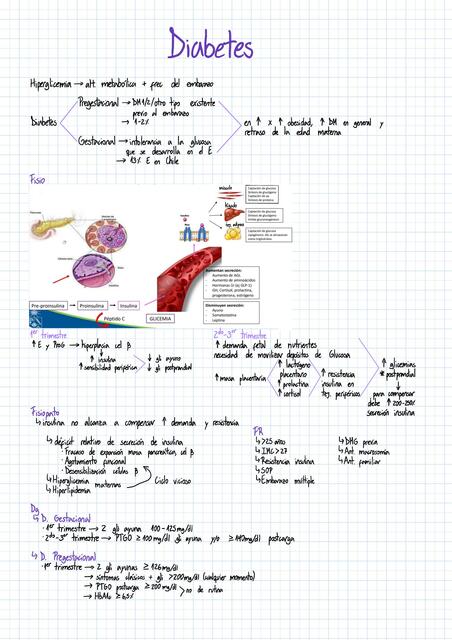 Diabetes
Hiperglicemia → alt. metabólica + frec del embarazo
Diabetes
Pregestacional → DM1/2/otro tipo existente
previo al embarazo
→ 1-2%
Gestacional → intolerancia a la glucosa
que se desarrolla en el E
→ 13% E en Chile
en ↑ x ↑ obesidad, ↑ DM en general y
retraso de la edad materna
Fisio
músculo
Captación de glucosa
Síntesis de glucógeno
Captación de aa
Síntesis de proteína
hígado
Captación de glucosa
Síntesis de glucógeno
Inhibe gluconeogénesis
tej. adiposo
Captación de glucosa
Aumentan secreción:
Aumento de AGL
Aumento de aminoácidos
Hormonas GI (ej GLP-1)
GH, Cortisol, prolactina,
progesterona, estrógeno
Disminuyen secreción:
Ayuno
Somatostatina
Leptina
Pre-proinsulina → Proinsulina → Insulina
Péptido C
GLICEMIA
1er trimestre
↑ E y PROG → hiperplasia cél β
↑ insulina
↑ sensibilidad periférica
↓ gli ayuno
↓ gli postprandial
2do-3er trimestre
↑ demanda fetal de nutrientes
necesidad de movilizar depósitos de Glucosa
↑ masa placentaria
↑ lactógeno
placentario
↑ prolactina
↑ cortisol
↑ resistencia
insulina en
tej. periféricos
↑ glicemias
postprandial
para compensar
debe ↑ 200-250%
secreción insulina
Fisiopato
↳ insulina no alcanza a compensar ↑ demanda y resistencia
↳ déficit relativo de secreción de insulina
· Fracaso de expansión masa pancreática, cel β
· Agotamiento funcional
· Desensibilización células β
↳ Hiperglicemia materna
↳ Hiperlipidemia
Ciclo vicioso
FR
↳ >25 años
↳ IMC >27
↳ Resistencia insulina
↳ SOP
↳ Embarazo múltiple
↳ DMG previa
↳ Ant. macrosomía
↳ Ant. familiar
Dg
↳ D. Gestacional
· 1er trimestre → 2 gli ayuna 100-125 mg/dl
· 2do-3er trimestre → PTGO ≥100 mg/dl gli ayuna y/o ≥140 mg/dl postcarga
↳ D. Pregestacional
· 1er trimestre → 2 gli ayunas ≥126 mg/dl
→ síntomas clásicos + gli >200 mg/dl (cualquier momento)
→ PTGO postcarga ≥200 mg/dl
→ HbA1c ≥6,5%
no de rutina